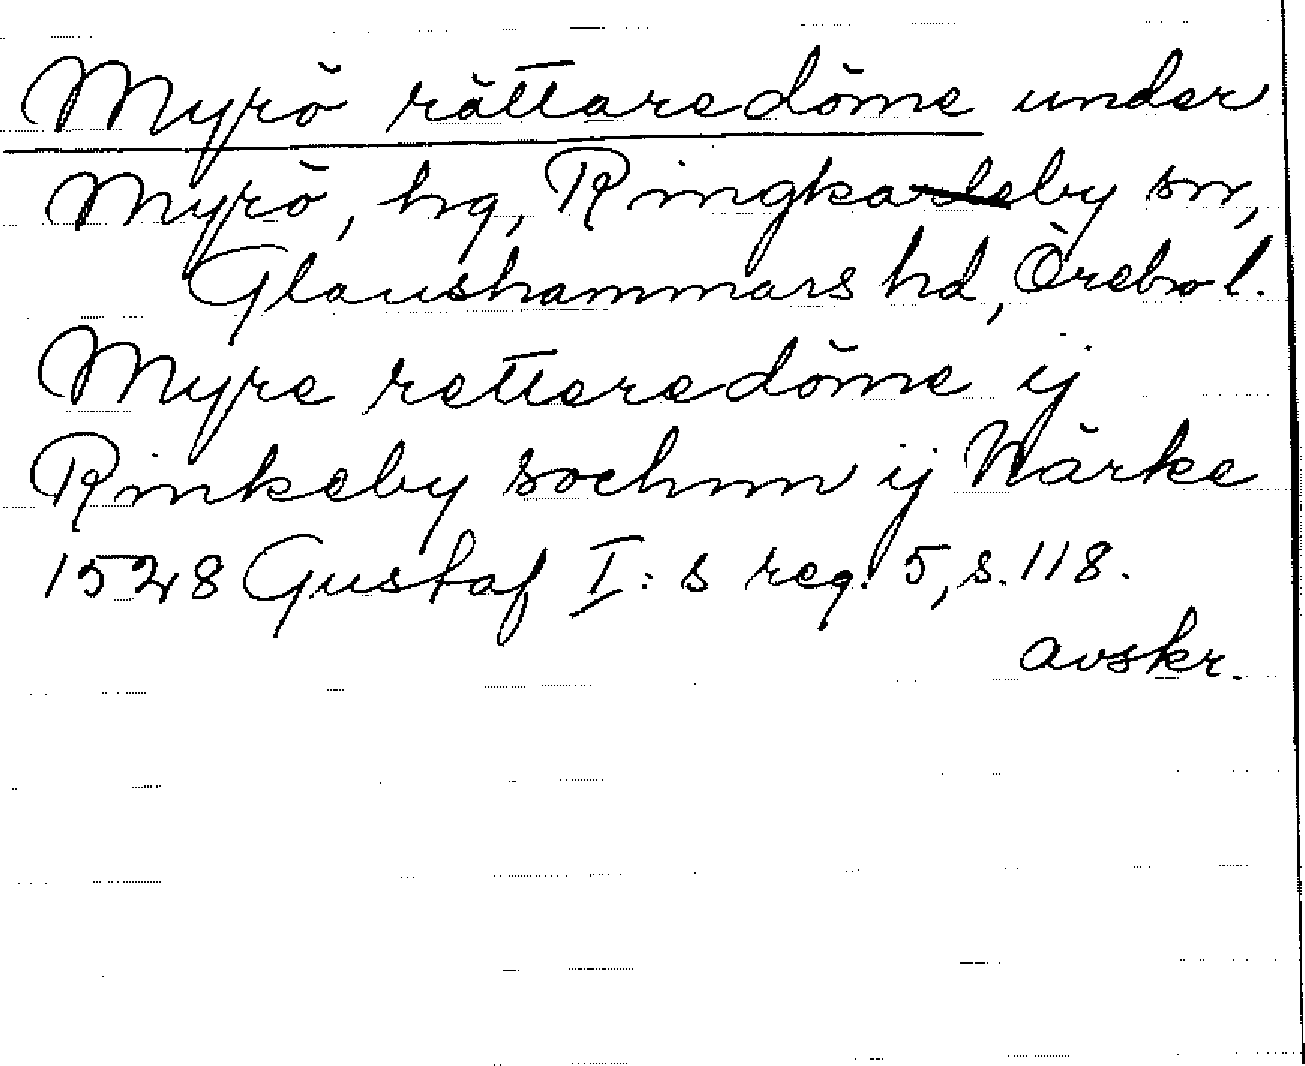 Myrö rättaredöme under
Myrö, hg, Ringkaby sn,
Glanshammars hd, Örebro l.
Myre retteredöme ij
Rinkeby sochnn ij Närke
1528 Gustaf I:s reg. 5, s. 118.
avskr.